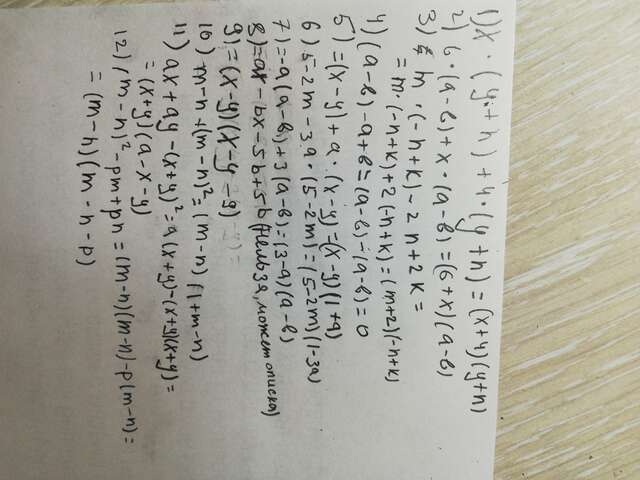 1) x · (y + n) + 4 · (y + n) = (x+4)(y+n)
2) 6 · (a-b) + x · (a-b) = (6+x)(a-b)
3) m · (-n+k) - 2n + 2k =
= m · (-n+k) + 2(-n+k) = (m+2)(-n+k)
4) (a-b) - a+b = (a-b) - (a-b) = 0
5) = (x-y) + a · (x-y) = (x-y)(1+a)
6) 5-2m - 3a · (5-2m) = (5-2m)(1-3a)
7) = -a(a-b) + 3(a-b) = (3-a)(a-b)
8) = ax - bx - 5b + 5b (нельзя, может описка)
9) = (x-y)(x-y-9)
10) m-n + (m-n)² = (m-n)(1+m-n)
11) ax + ay - (x+y)² = a(x+y) - (x+y)(x+y) =
= (x+y)(a-x-y)
12) (m-n)² - pm + pn = (m-n)(m-n) - p(m-n) =
= (m-n)(m-n-p)